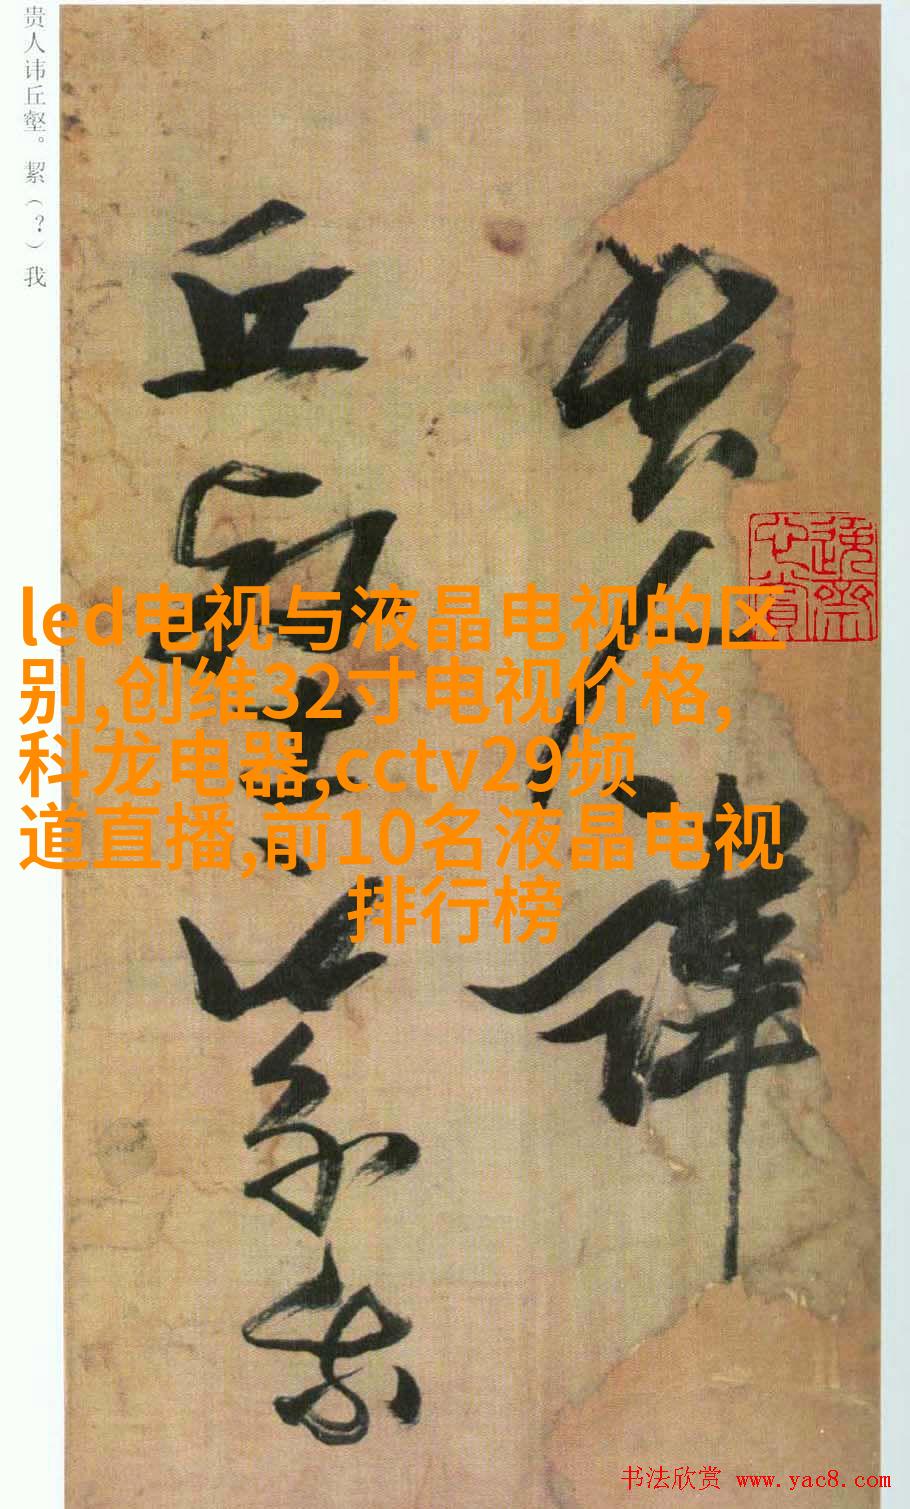 贵人讳丘壑。絜（？）我
贵人讳
丘壑
我
led电视与液晶电视的区
别,创维32寸电视价格,
科龙电器,cctv29频
道直播,前10名液晶电视
排行榜
书法欣赏 www.yac8.com